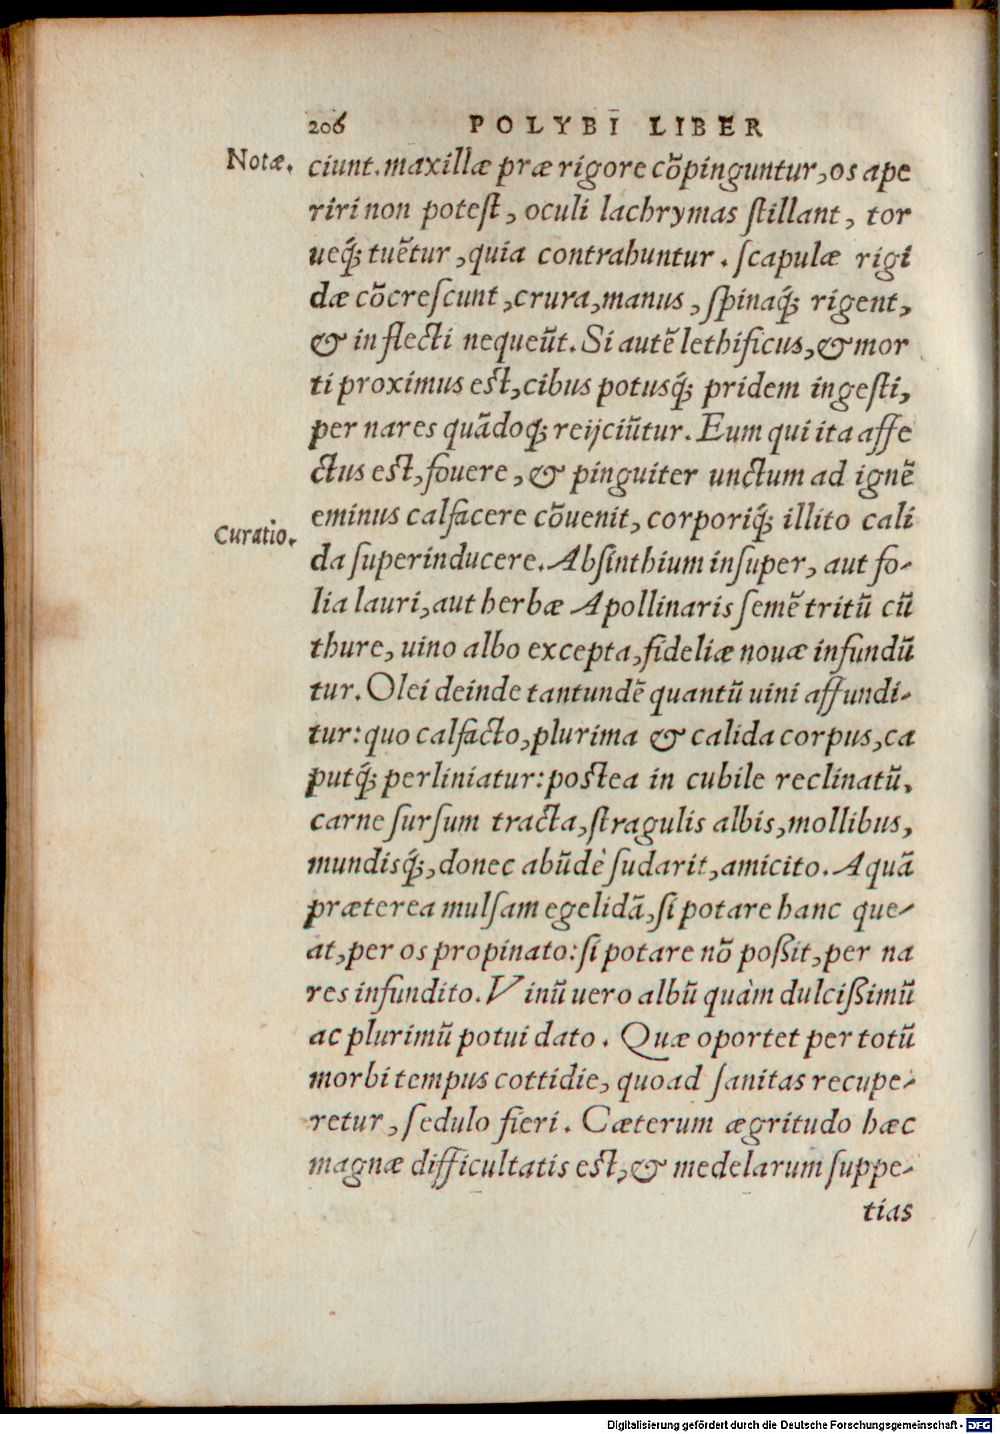 206 POLYBI LIBER
Notæ. ciunt. maxillæ præ rigore cõpinguntur, os ape
riri non potest, oculi lachrymas stillant, tor
ueq́; tuẽtur, quia contrahuntur. scapulæ rigi
dæ cõcrescunt, crura, manus, spinaq́; rigent,
& inflecti nequeũt. Si autẽ lethificus, & mor
ti proximus est, cibus potusq́; pridem ingesti,
per nares quãdoq; reijciũtur. Eum qui ita affe
ctus est, fouere, & pinguiter unctum ad ignẽ
eminus calfacere cõuenit, corporiq́; illito cali
Curatio. da superinducere. Absinthium insuper, aut fo-
lia lauri, aut herbæ Apollinaris semẽ tritũ cũ
thure, uino albo excepta, fideliæ nouæ infundũ
tur. Olei deinde tantundẽ quantũ uini affundi-
tur: quo calfacto, plurima & calida corpus, ca
putq́; perliniatur: postea in cubile reclinatũ,
carne sursum tracta, stragulis albis, mollibus,
mundisq́;, donec abũdè sudarit, amicito. Aquã
præterea mulsam egelidã, si potare hanc que-
at, per os propinato: si potare nõ poßit, per na
res infundito. Vinũ uero albũ quàm dulcißimũ
ac plurimũ potui dato. Quæ oportet per totũ
morbi tempus cottidie, quoad sanitas recupe-
retur, sedulo fieri. Cæterum ægritudo hæc
magnæ difficultatis est, & medelarum suppe-
tias
Digitalisierung gefördert durch die Deutsche Forschungsgemeinschaft - DFG